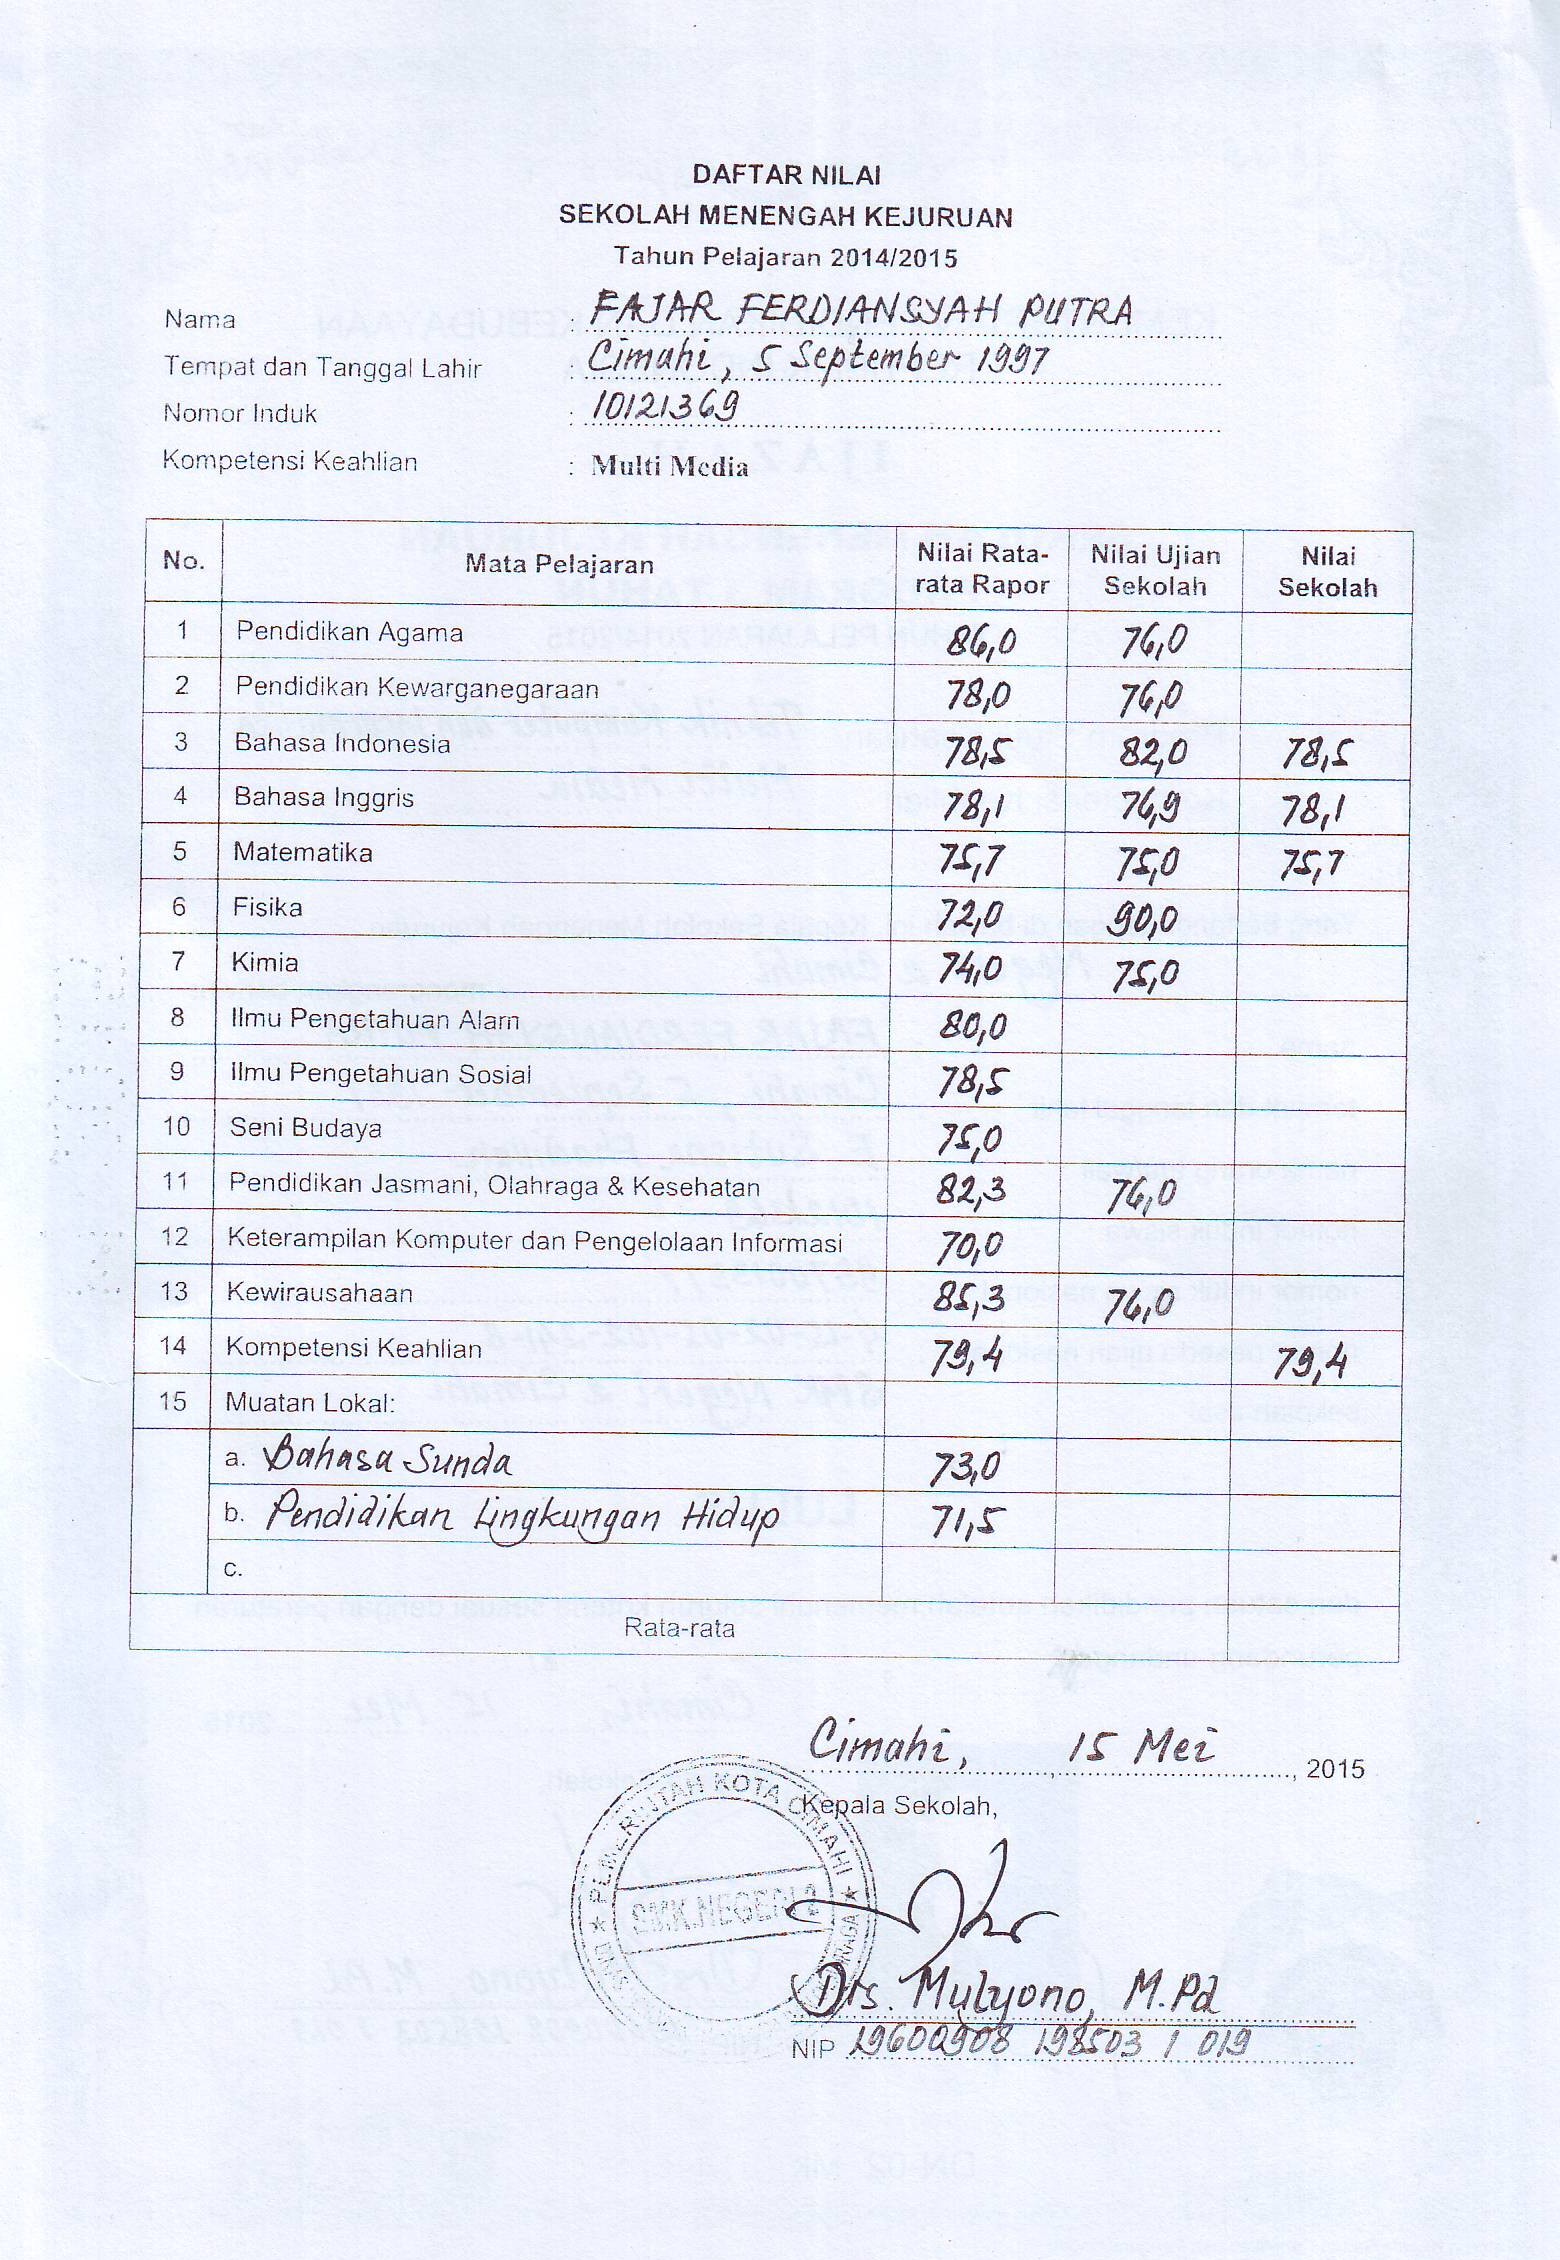 DAFTAR NILAI
SEKOLAH MENENGAH KEJURUAN
Tahun Pelajaran 2014/2015
Nama : FAJAR FERDIANSYAH PUTRA
Tempat dan Tanggal Lahir : Cimahi, 5 September 1997
Nomor Induk : 10121369
Kompetensi Keahlian : Multi Media
No. Mata Pelajaran Nilai Rata-rata Rapor Nilai Ujian Sekolah Nilai Sekolah
1 Pendidikan Agama 86,0 76,0
2 Pendidikan Kewarganegaraan 78,0 76,0
3 Bahasa Indonesia 78,5 82,0 78,5
4 Bahasa Inggris 78,1 76,9 78,1
5 Matematika 75,7 75,0 75,7
6 Fisika 72,0 90,0
7 Kimia 74,0 75,0
8 Ilmu Pengetahuan Alam 80,0
9 Ilmu Pengetahuan Sosial 78,5
10 Seni Budaya 75,0
11 Pendidikan Jasmani, Olahraga & Kesehatan 82,3 76,0
12 Keterampilan Komputer dan Pengelolaan Informasi 70,0
13 Kewirausahaan 85,3 76,0
14 Kompetensi Keahlian 79,4 79,4
15 Muatan Lokal:
a. Bahasa Sunda 73,0
b. Pendidikan Lingkungan Hidup 71,5
c.
Rata-rata
Cimahi, 15 Mei, 2015
Kepala Sekolah,
PEMERINTAH KOTA CIMAHI
SMK.NEGERI 2
Drs. Mulyono, M.Pd
NIP 19600908 198503 1 019